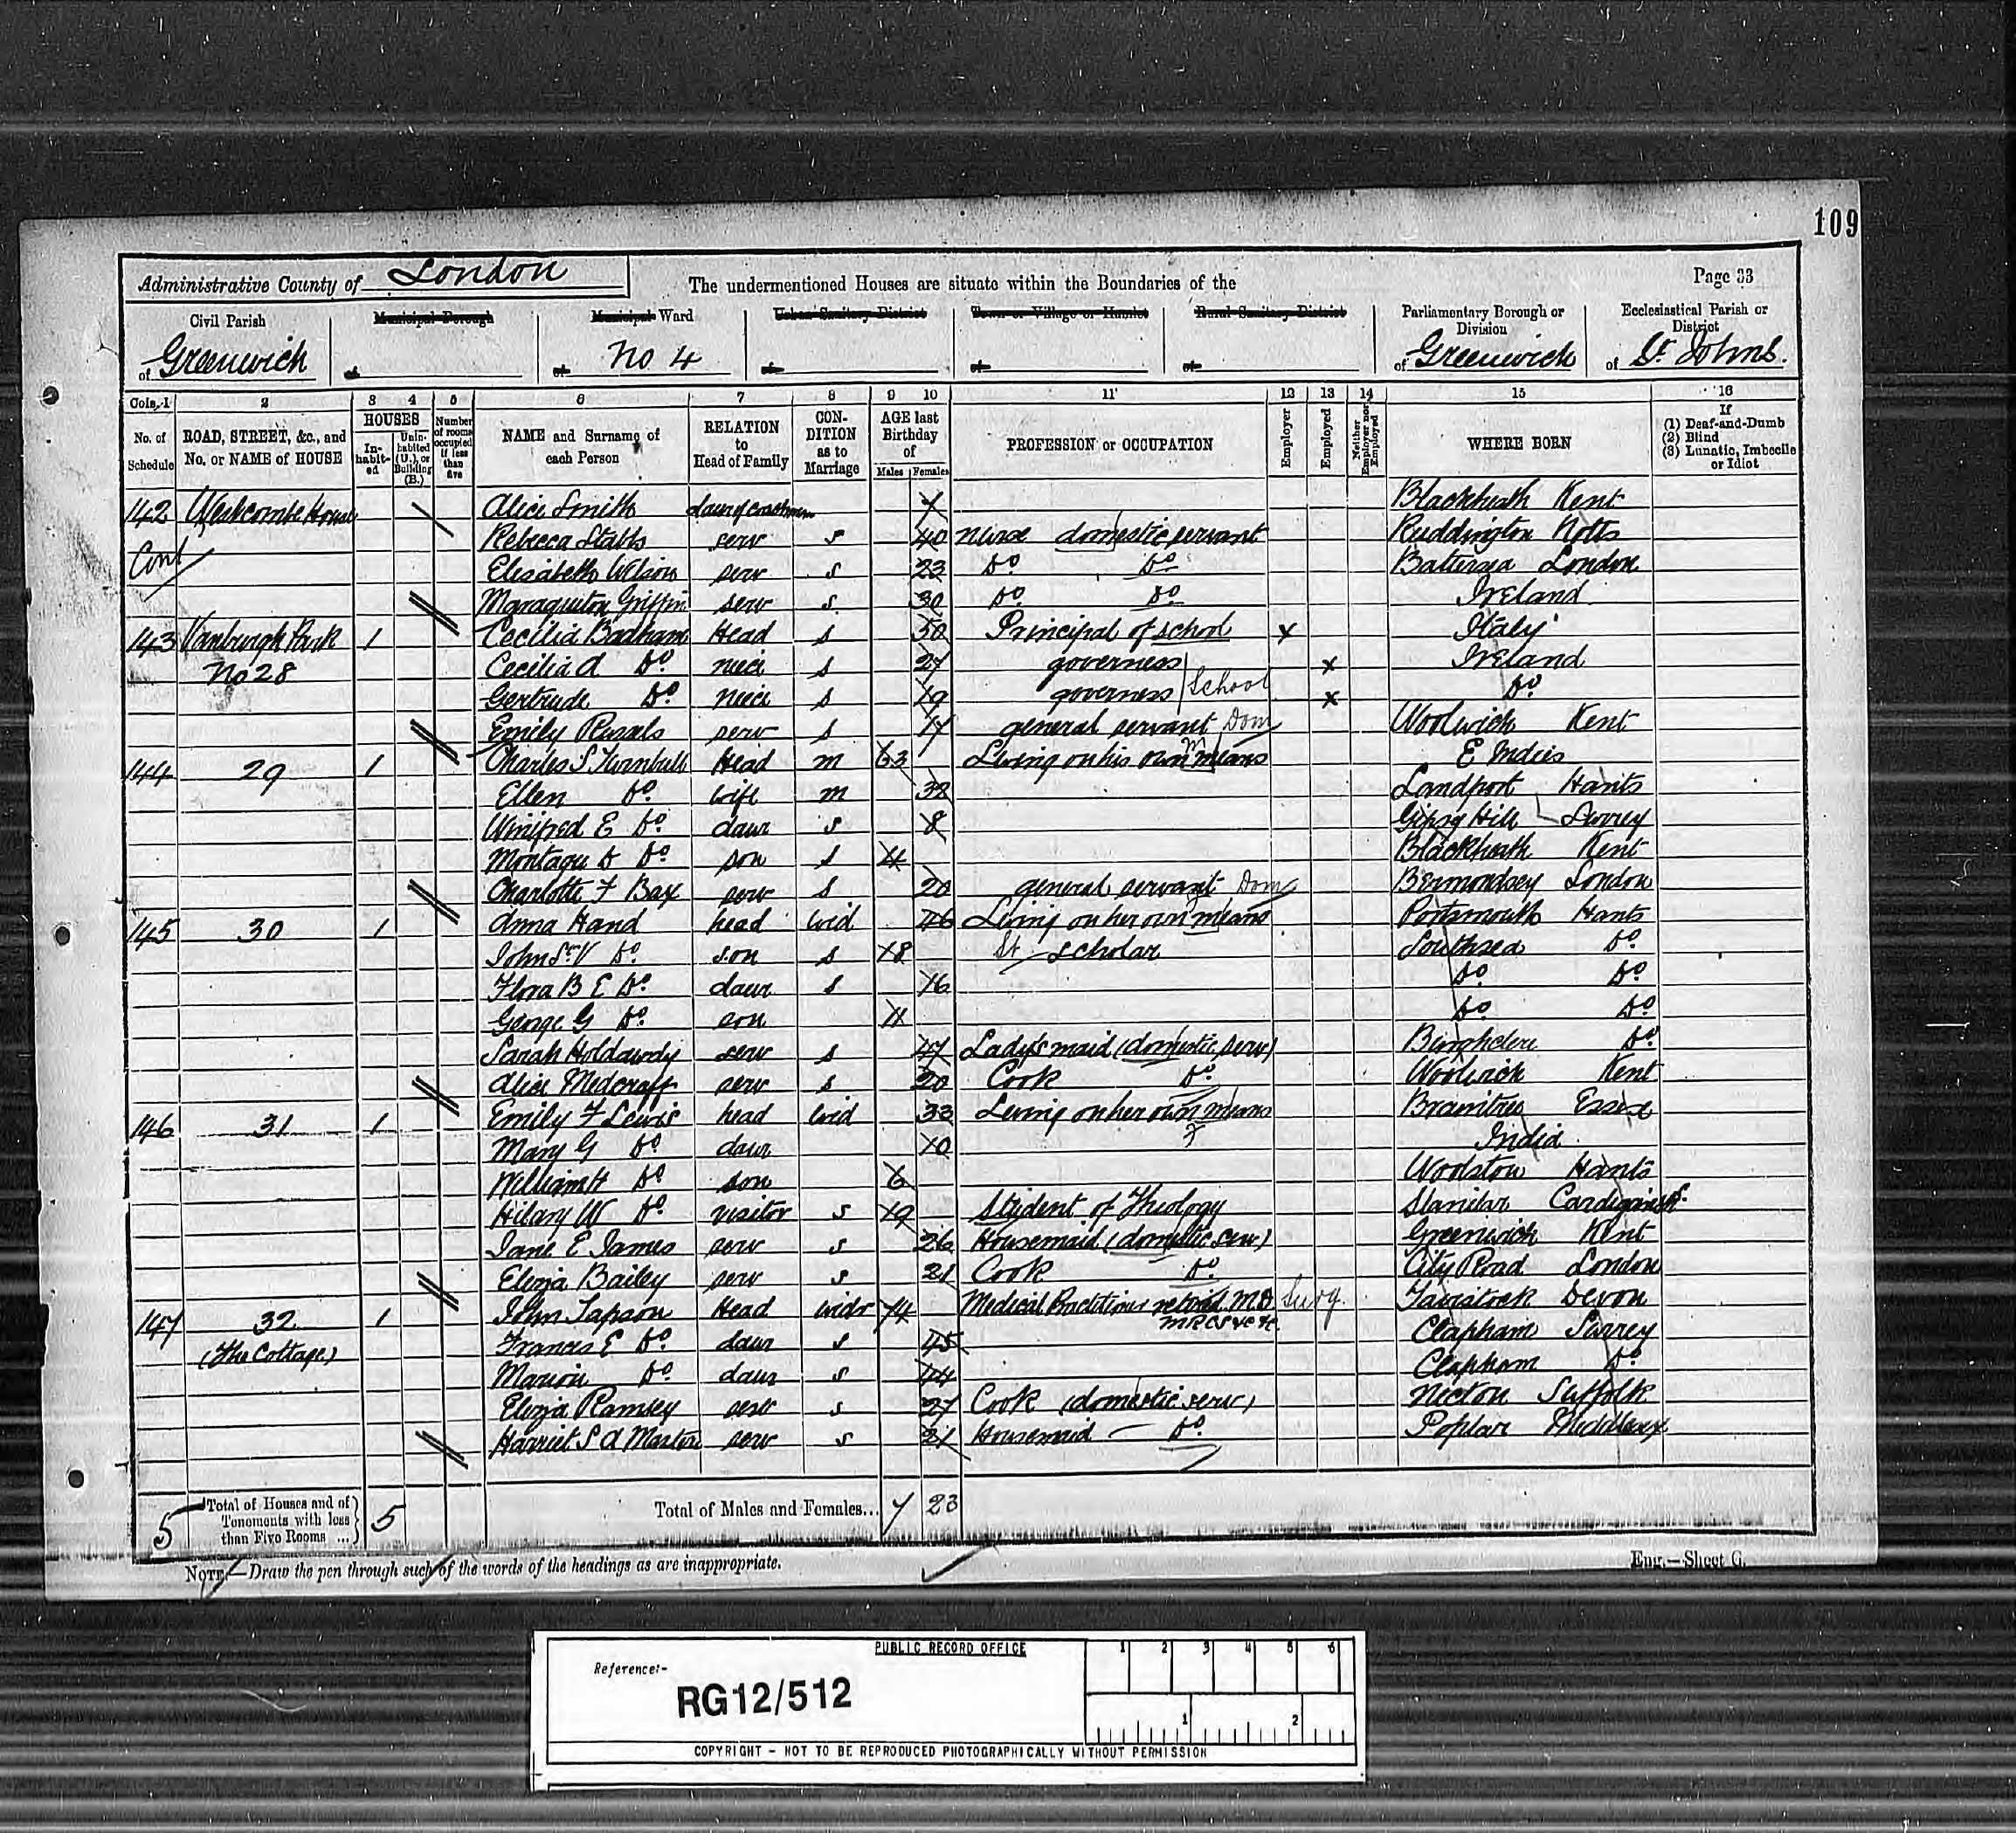 109
Administrative County of London
The undermentioned Houses are situate within the Boundaries of the
Page 33
Civil Parish
of Greenwich
Municipal Borough
of
Municipal Ward
of No 4
Urban Sanitary District
of
Town or Village or Hamlet
of
Rural Sanitary District
of
Parliamentary Borough or Division
of Greenwich
Ecclesiastical Parish or District
of St. Johns.
Cols. 1 2 3 4 5 6 7 8 9 10 11 12 13 14 15 16
No. of Schedule
ROAD, STREET, &c., and No. or NAME of HOUSE
HOUSES
In-habit-ed
Unin-habited (U.), or Building (B.)
Number of rooms occupied if less than five
NAME and Surname of each Person
RELATION to Head of Family
CON-DITION as to Marriage
AGE last Birthday of
Males Females
PROFESSION or OCCUPATION
Employer
Employed
Neither Employer nor Employed
WHERE BORN
If
(1) Deaf-and-Dumb
(2) Blind
(3) Lunatic, Imbecile or Idiot
142 Westcombe House Alice Smith daur of coachman 7 Blackheath Kent
Cont Rebecca Stabbs serv s 40 nurse domestic servant Ruddington Notts
Elizabeth Wilson serv s 23 Do Do Battersea London
Griffin serv s. 30 Do Do Ireland
143 Vanburgh Park 1 Cecilia Badham Head s 50 Principal of school x Italy
No 28 Cecilia A Do neice s 27 governess x Ireland
Gertrude Do neice s 19 governess School x Do
Emily serv s 17 general servant Dom Woolwich Kent
144 29 1 Charles S Turnbull Head m 63 Living on his own means E Indies
Ellen Do. wife m 32 Landport Hants
Winifred E Do. daur s 8 Gipsy Hill Surrey
Montague Do son s 4 Blackheath Kent
Charlotte F Bax serv s 20 general servant Dom Bermondsey London
145 30 1 Anna Hand head wid 46 Living on her own means Portsmouth Hants
John Sr V Do. son s 18 St scholar Southsea Do
Flora B E Do. daur s 16 Do Do
George G Do. son 11 Do Do
Sarah Holdaway serv s 47 Lady's maid (domestic serv) Do
Alice Medcraff serv s 20 Cook Do. Woolwich Kent
146 31 1 Emily F Lewis head wid 33 Living on her own means Braintree Essex
Mary G Do daur 10 India
William H Do son 6 Woolston Hants
Hilary W Do visitor s 19 Student of Theology Cardigansh.
Jane E James serv s 26 Housemaid (domestic serv) Greenwich Kent
Eliza Bailey serv s 21 Cook Do. City Road London
147 32 1 John Tapson Head widr 74 Medical Practitioner retired M.D Surg. Tavistock Devon
MRCS &c &c.
(The Cottage) Frances E Do. daur s 45 Clapham Surrey
Marion Do. daur s 44 Clapham Do.
Eliza Ramsey serv s 27 Cook (domestic serv) Suffolk
Harriet S A Marton serv s 21 Housemaid — Do. Poplar Middlesex
5 Total of Houses and of Tenements with less than Five Rooms ... 5
Total of Males and Females... 7 23
NOTE.—Draw the pen through such of the words of the headings as are inappropriate.
Eng.—Sheet G.
PUBLIC RECORD OFFICE
Reference:-
RG12/512
1 2 3 4 5 6
1 2
COPYRIGHT - NOT TO BE REPRODUCED PHOTOGRAPHICALLY WITHOUT PERMISSION